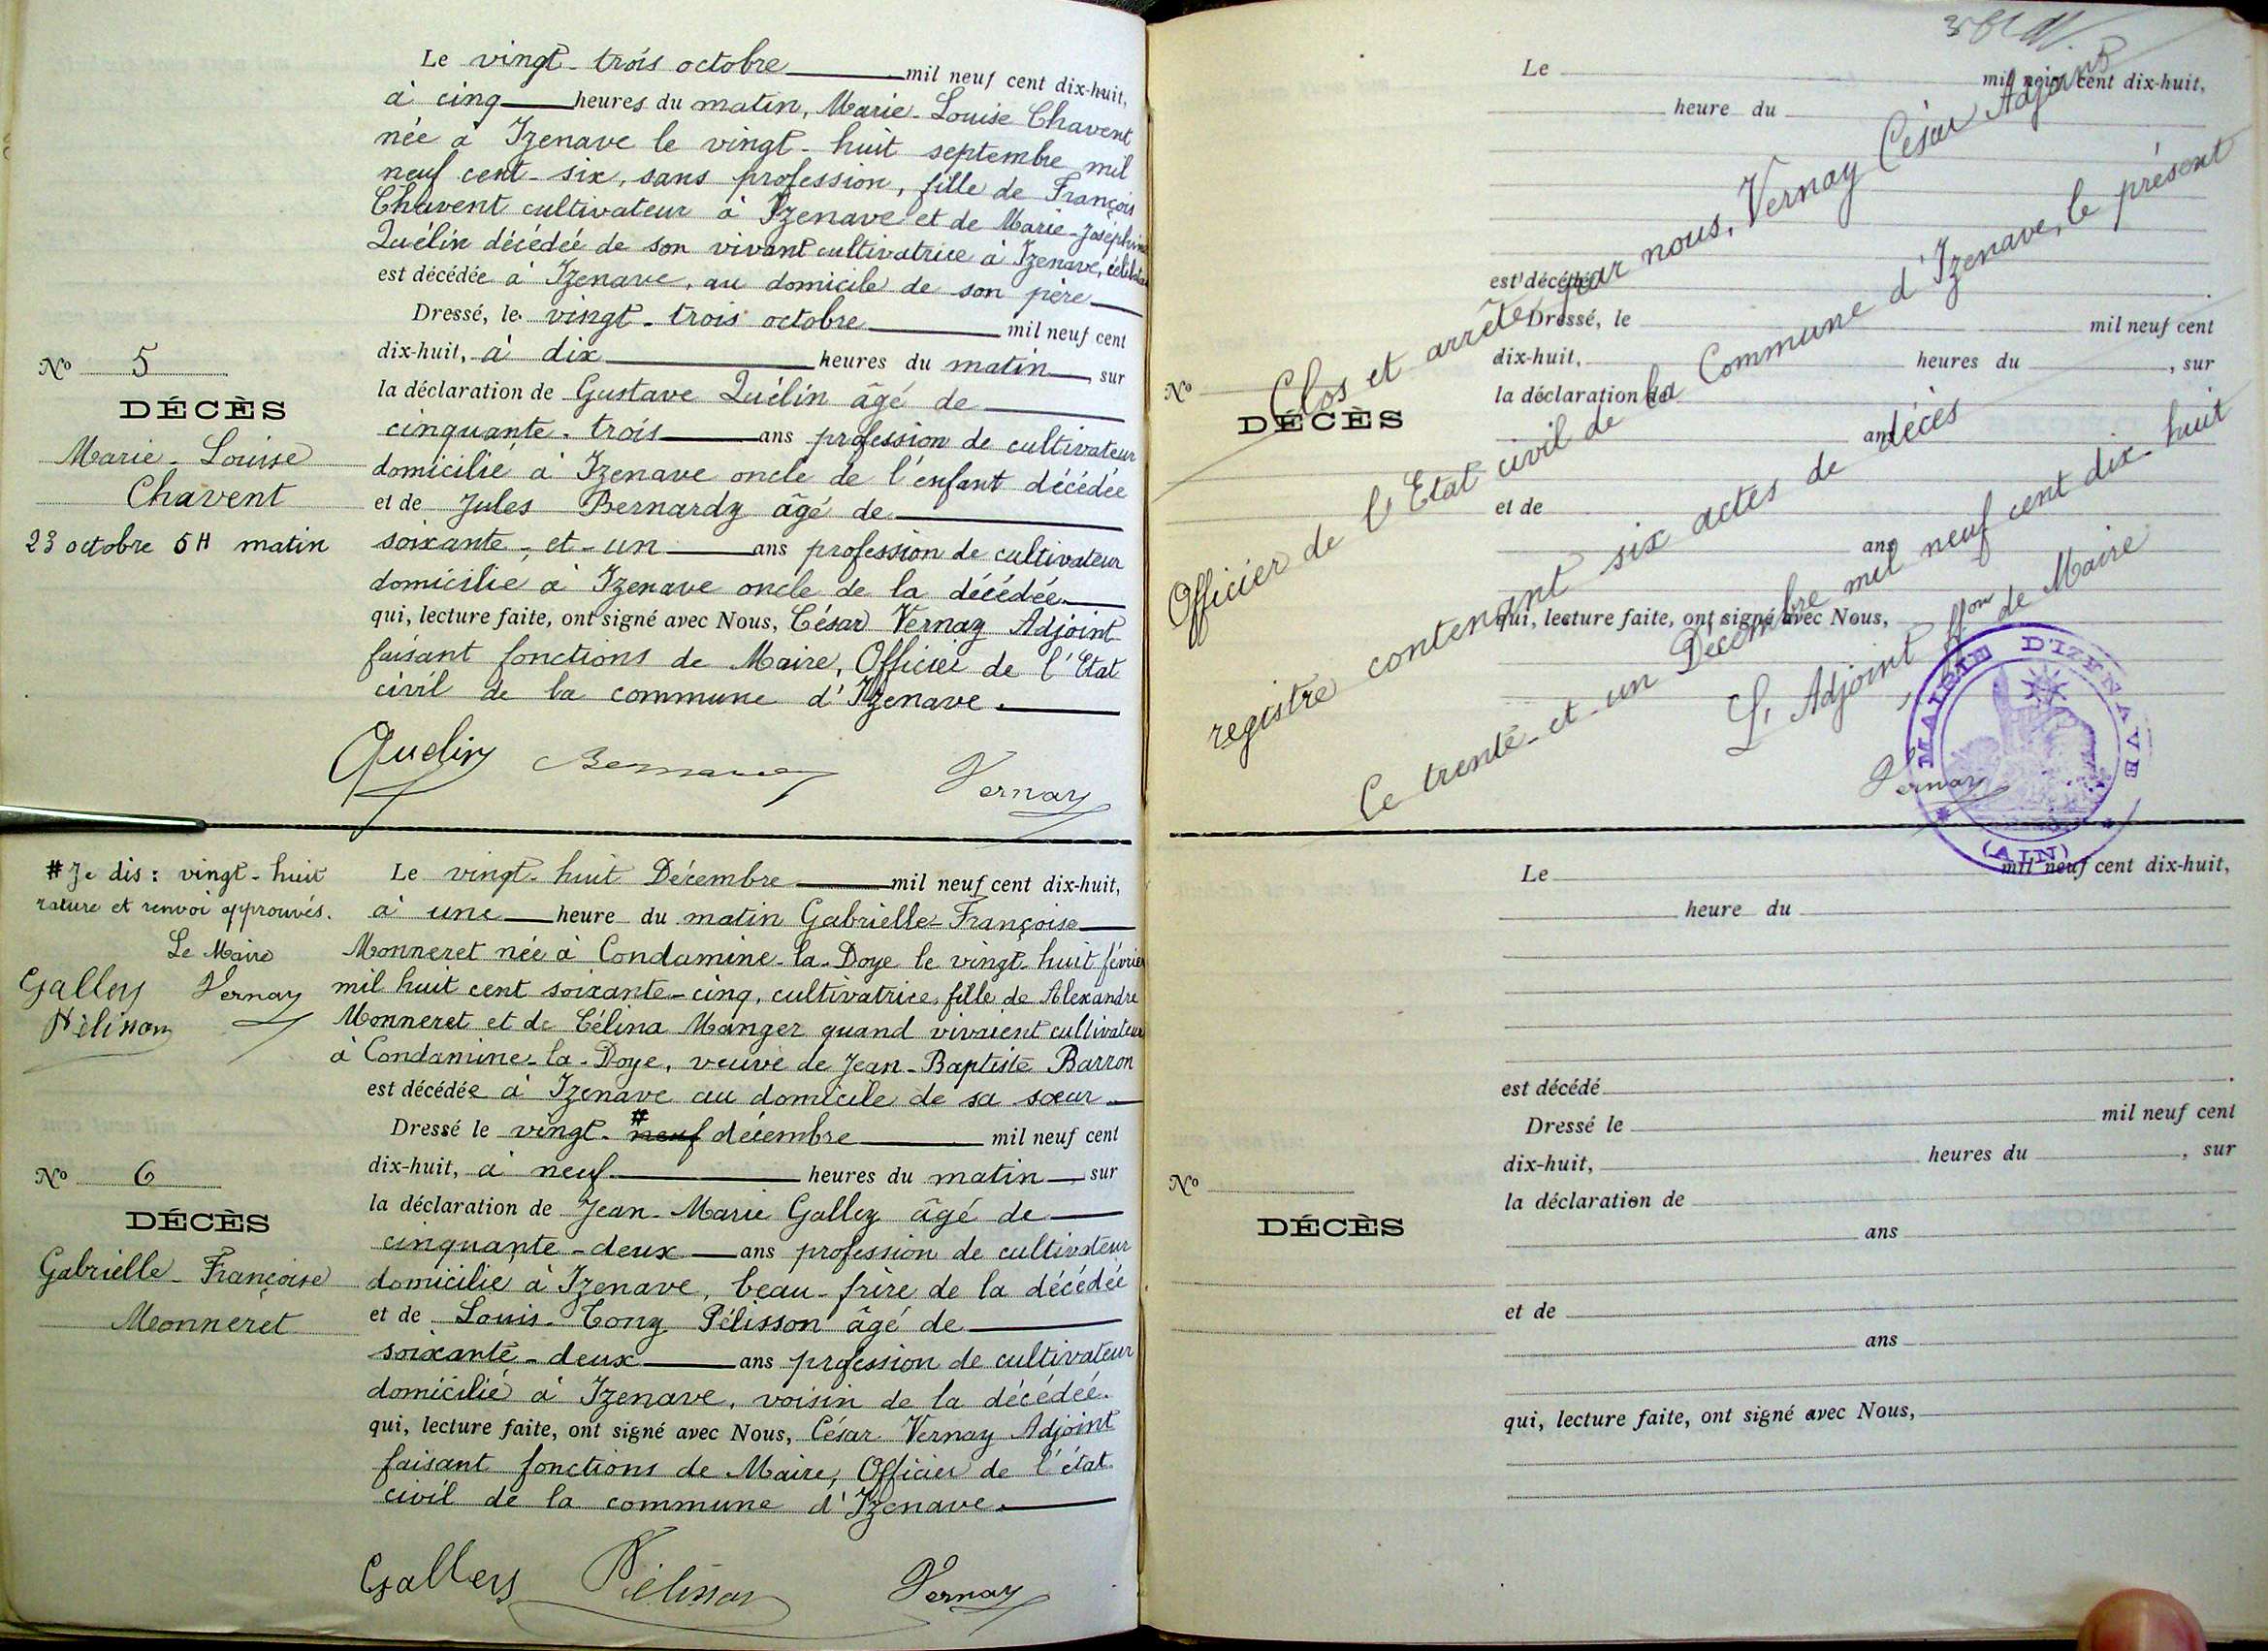 Le vingt-trois octobre mil neuf cent dix-huit,
à cinq heures du matin, Marie-Louise Chavent
née à Izenave le vingt-huit septembre mil
neuf cent-six, sans profession, fille de François
Chavent cultivateur à Izenave et de Marie-Joséphine
Quélin décédée de son vivant cultivatrice à Izenave,
est décédée à Izenave, au domicile de son père
Dressé, le vingt-trois octobre mil neuf cent
dix-huit, à dix heures du matin, sur
No 5
la déclaration de Gustave Quélin âgé de
DÉCÈS
cinquante-trois ans profession de cultivateur
Marie-Louise
domicilié à Izenave oncle de l'enfant décédée
Chavent
et de Jules Bernardy âgé de
23 octobre 5H matin
soixante-et-un ans profession de cultivateur
domicilié à Izenave oncle de la décédée
qui, lecture faite, ont signé avec Nous, César Vernay Adjoint
faisant fonctions de Maire, Officier de l'Etat
civil de la commune d'Izenave.
Quelin Vernay
# Je dis : vingt-huit
rature et renvoi approuvés.
Le Maire
Galley Vernay
Pélisson
Le vingt-huit Décembre mil neuf cent dix-huit,
à une heure du matin Gabrielle-Françoise
Monneret née à Condamine-la-Doye le vingt-huit février
mil huit cent soixante-cinq, cultivatrice, fille de Alexandre
Monneret et de Célina Manger quand vivaient cultivateurs
à Condamine-la-Doye, veuve de Jean-Baptiste Barron
est décédée à Izenave au domicile de sa sœur
Dressé le vingt-neuf # décembre mil neuf cent
dix-huit, à neuf heures du matin, sur
No 6
la déclaration de Jean-Marie Galley âgé de
DÉCÈS
cinquante-deux ans profession de cultivateur
Gabrielle-Françoise
domicilié à Izenave, beau-frère de la décédée
Monneret
et de Louis-Tony Pélisson âgé de
soixante-deux ans profession de cultivateur
domicilié à Izenave, voisin de la décédée.
qui, lecture faite, ont signé avec Nous, César Vernay Adjoint
faisant fonctions de Maire, Officier de l'état
civil de la commune d'Izenave.
Galley Pélisson Vernay
Le mil neuf cent dix-huit,
heure du
est décédé
Dressé, le mil neuf cent
dix-huit, heures du , sur
No
la déclaration de
DÉCÈS
ans
et de
ans
qui, lecture faite, ont signé avec Nous,
Clos et arrêté par nous, Vernay César Adjoint
Officier de l'Etat civil de la Commune d'Izenave, le présent
registre contenant six actes de décès
Ce trente-et-un Décembre mil neuf cent dix-huit
L'Adjoint ffon de Maire
Vernay
MAIRIE D'IZENAVE
(AIN)
Le mil neuf cent dix-huit,
heure du
est décédé
Dressé le mil neuf cent
dix-huit, heures du , sur
No
la déclaration de
DÉCÈS
ans
et de
ans
qui, lecture faite, ont signé avec Nous,